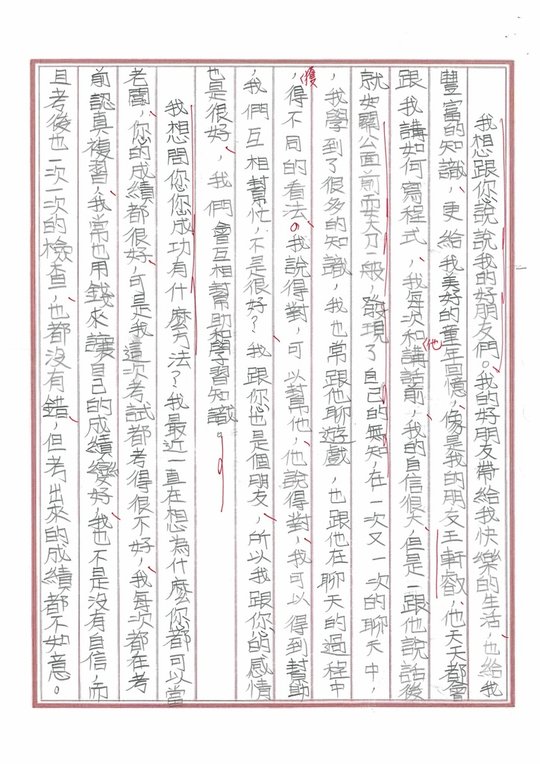 我想跟你說說我的好朋友們。我的好朋友帶給我快樂的生活,也給我
豐富的知識,更給我美好的童年回憶,像是我的朋友王軒睿,他天天都會
跟我講如何寫程式,我每次和他講話前,我的自信很大,但是一跟他說話後
就如關公面前耍大刀一般,發現了自己的無知,在一次又一次的聊天中,
,我學到了很多的知識,我也常跟他聊遊戲,也跟他在聊天的過程中
,獲得不同的看法。我說得對,可以幫他,他說得對,我可以得到幫助
,我們互相幫忙,不是很好?我跟您也是個朋友,所以我跟您的感情
也是很好,我們會互相幫助和學習知識。
我想問您您成功有什麼方法?我最近一直在想為什麼您都可以當
老闆,您的成績都很好,可是我這次考試都考得很不好,我每次都在考
前認真複習,我常也用錢來讓自己的成績變好,我也不是沒有自信,而
且考後也一次一次的檢查,也都沒有錯,但考出來的成績都不如意。